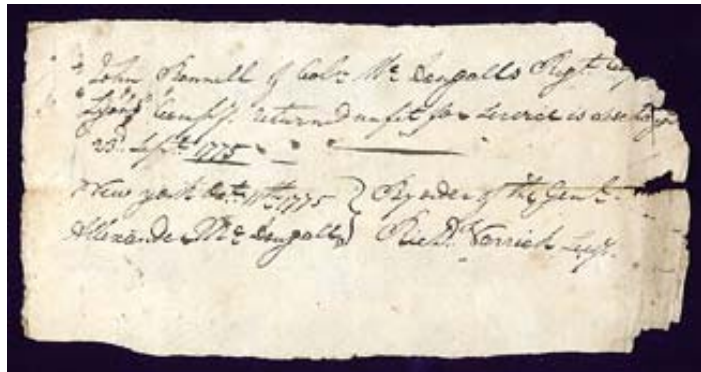 "John Rennell of Colo. Mc Dougalls Regt.
"Lyons" Compy. returned unfit for Service is discharged
23d. Septr. 1775
New york Octr. 11th. 1775 } By order of the Genl.
Allexander Mc Dougall Richd. Varrick Secy.